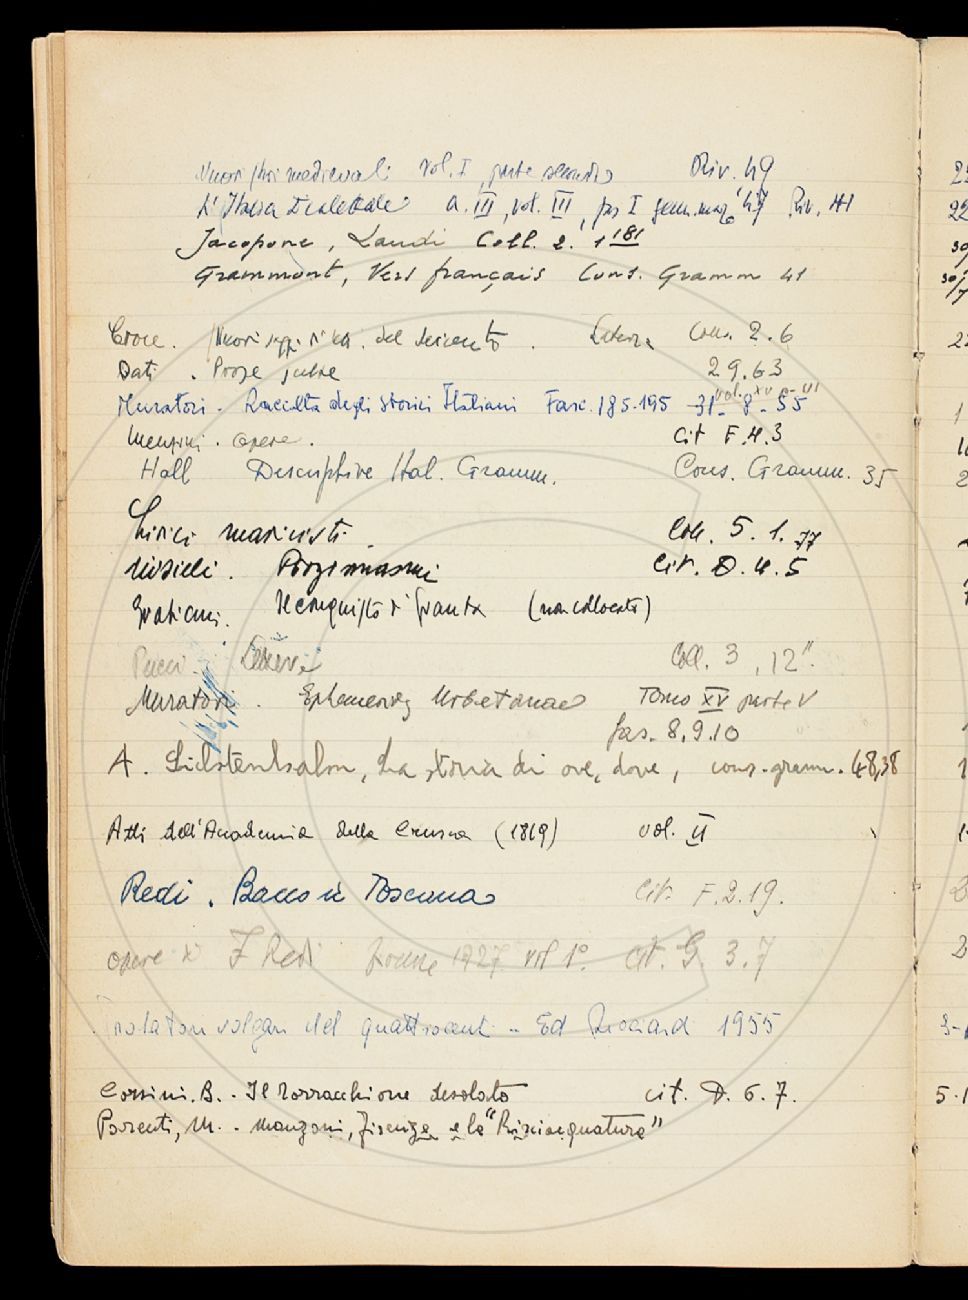 medievali vol. I, parte seconda Riv. 49
L'Italia Dialettale a. III, vol. III, fas I genn. mag. '47 Riv. 41
Jacopone, Laudi Coll. 2. 1 181
Grammont, Vers français Cons. Gramm 41
Croce. Nuovi saggi del seicento. Laterza Coll. 2.6
Dati. Prose 29.63
Muratori. Raccolta degli storici Italiani Fasc. 185-195 31-8-55 vol. XV p. VI
Menzini. opere. cit F.4.3
Hall Descriptive Ital. Gramm. Cons. Gramm. 35
Lirici marinisti. Coll. 5. 1. 77
Cit. D. 4. 5
Graziani. Il conquisto di Granata (non collocato)
Pucci. Coll. 3, 12".
Muratori. Ephemerides Urbetanae Tomo XV parte V
fas. 8.9.10
A. La storia di ove, dove, cons. gramm. 48,38
Atti dell'Accademia della Crusca (1819) vol. II
Redi. Bacco in Toscana Cit. F.2.19.
opere di F Redi Firenze 1727 vol 1°. cit. G. 3.7
volgari del quattrocento - Ed Ricciardi 1955
Corsini. B. - Il Torracchione desolato cit. D. 6. 7.
Parenti, M. - Manzoni, Firenze e la "Risciacquatura"